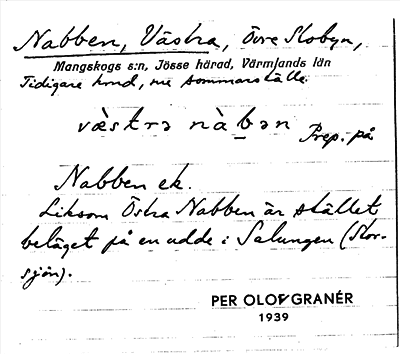 Nabben, Västra, Övre Skobyn,
Mangskogs s:n, Jösse härad, Värmlands län
Tidigare hmd, nu sommarställe.
væ̀strə nàbən Prep. på
Nabben ek.
Liksom Östra Nabben är stället
beläget på en udde i Salungen (Stor-
sjön).
PER OLOF GRANÉR
1939